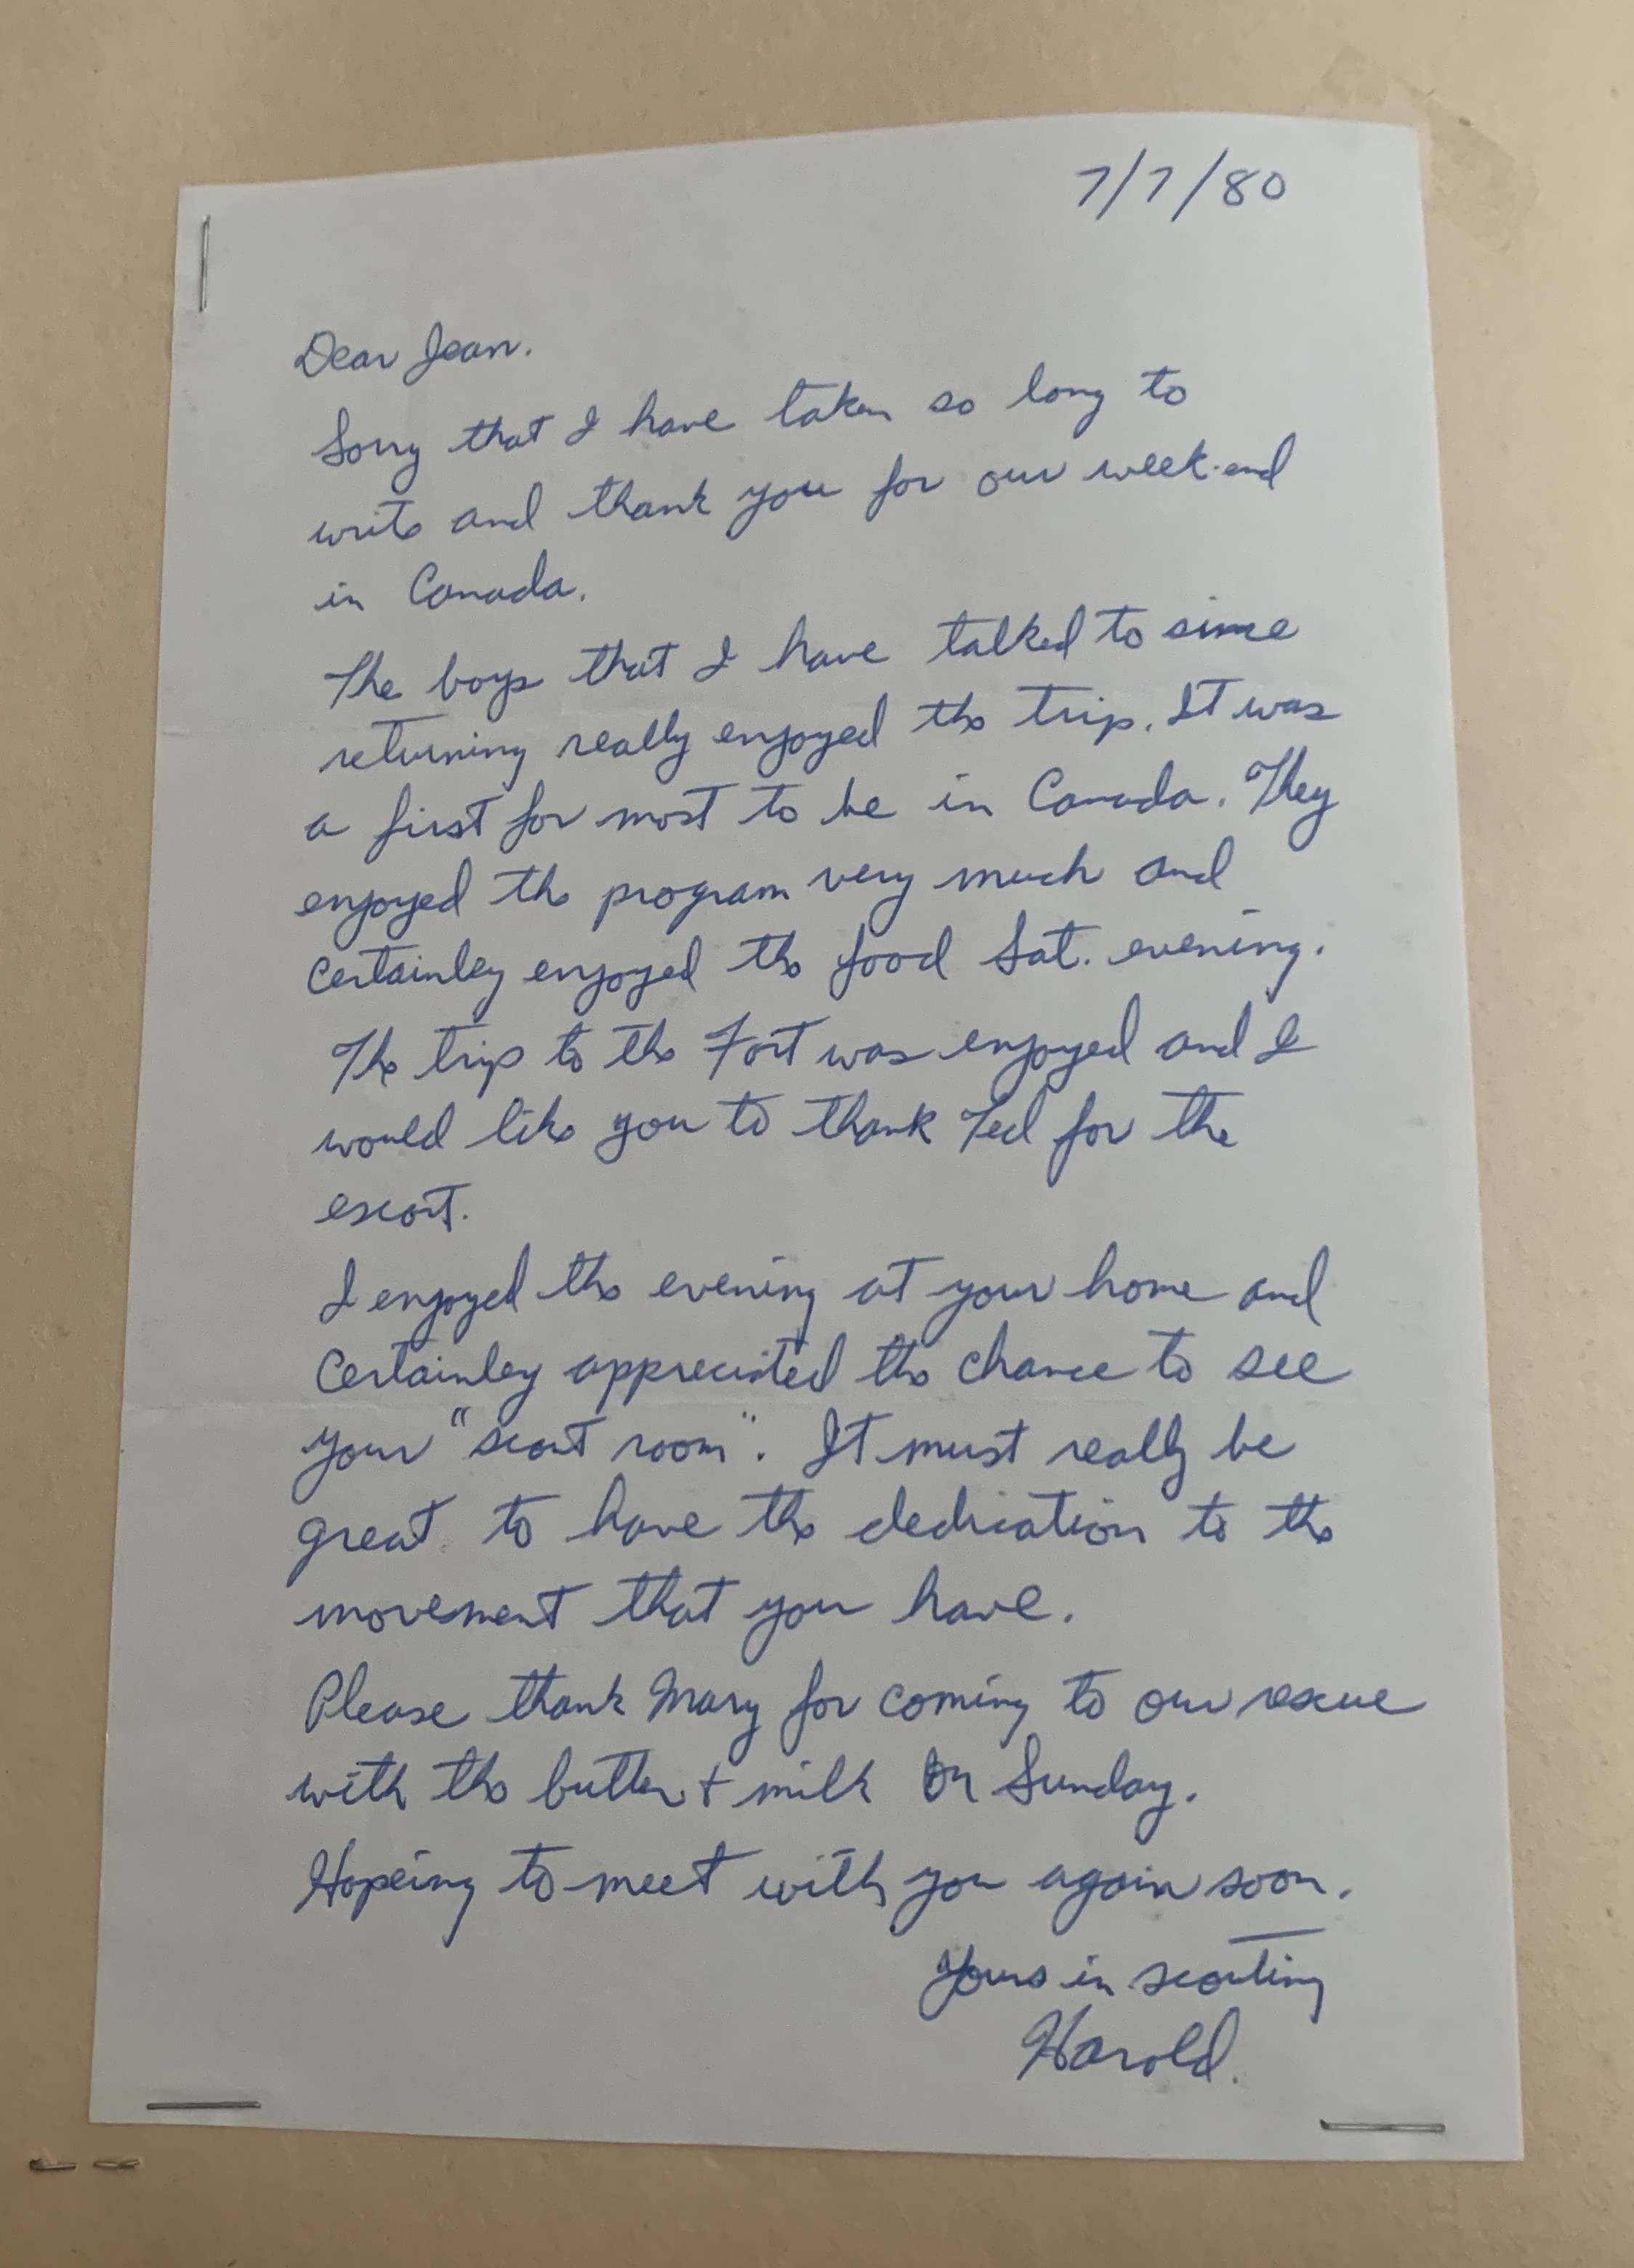 7/7/80
Dear Jean.
Sorry that I have taken so long to
write and thank you for our week-end
in Canada.
The boys that I have talked to since
returning really enjoyed the trip. It was
a first for most to be in Canada. They
enjoyed the program very much and
certainley enjoyed the food Sat. evening.
The trip to the Fort was enjoyed and I
would like you to thank Ted for the
escort.
I enjoyed the evening at your home and
certainley appreciated the chance to see
your "scout room". It must really be
great to have the dedication to the
movement that you have.
Please thank Mary for coming to our rescue
with the butter + milk on Sunday.
Hopeing to meet with you again soon.
Yours in scouting
Harold.